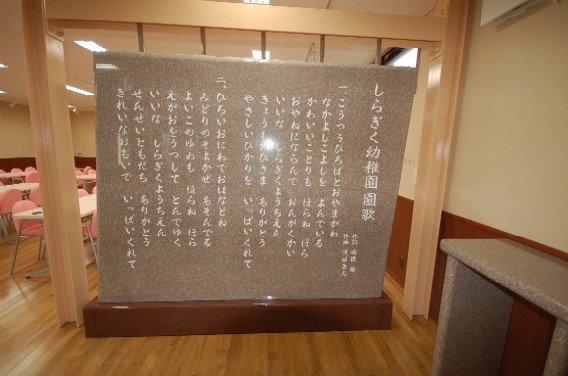 しらぎく幼稚園園歌
作詞
作曲
一、こうつうひろばとおやまがわ
なかよしこよしを よんでいる
かわいいことりも ほらね ほら
おやねにならんで おんがくかい
いいな しらぎくようちえん
きいろいおひさま ありがとう
やさしいひかりを いっぱいくれて
二、ひろいおにわでおはなとね
みどりのそよかぜ あそんでる
よいこのゆめも ほらね ほら
えがおをうつして とんでゆく
いいな しらぎくようちえん
せんせいともだち ありがとう
きれいなおもいで いっぱいくれて